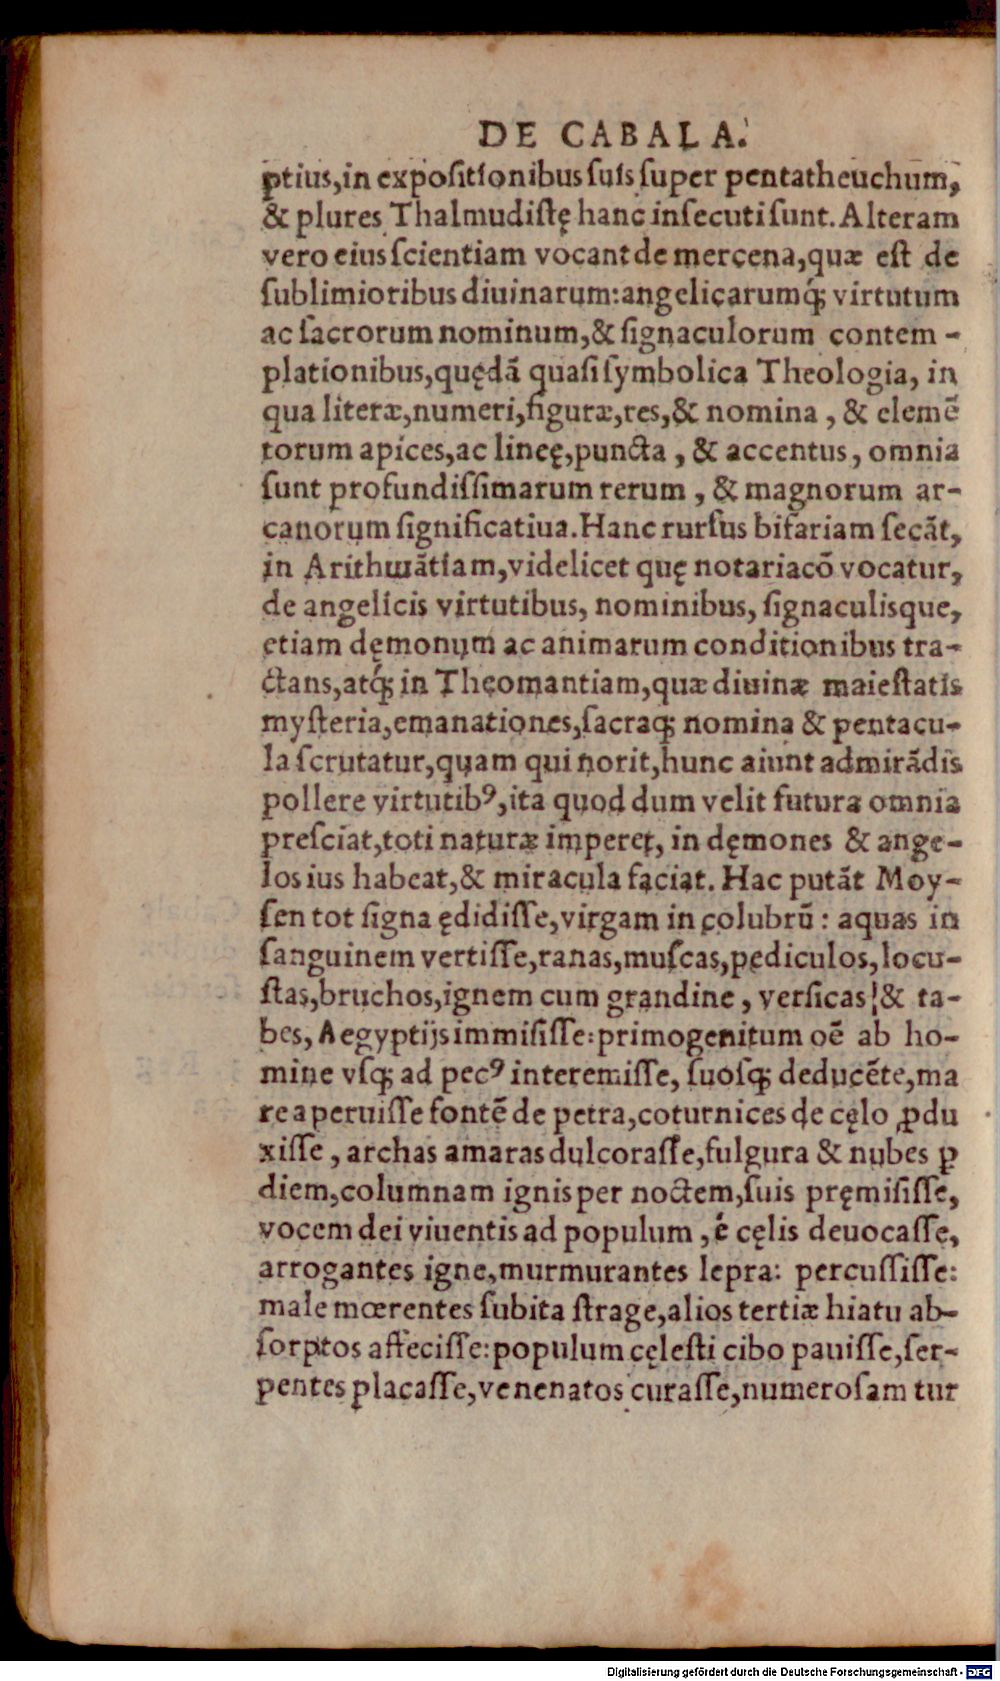 DE CABALA.
ptius,in expositionibus suis super pentatheuchum,
& plures Thalmudistę hanc insecuti sunt. Alteram
vero eius scientiam vocant de mercena,quæ est de
sublimioribus diuinarum:angelicarumq́; virtutum
ac sacrorum nominum,& signaculorum contem-
plationibus,quędã quasi symbolica Theologia, in
qua literæ,numeri,figuræ,res,& nomina , & elemẽ
torum apices,ac lineę,puncta , & accentus, omnia
sunt profundissimarum rerum , & magnorum ar-
canorum significatiua. Hanc rursus bifariam secãt,
in Arithmãtiam,videlicet quę notariacõ vocatur,
de angelicis virtutibus, nominibus, signaculisque,
etiam dęmonum ac animarum conditionibus tra-
ctans,atq́; in Theomantiam,quæ diuinæ maiestatis
mysteria,emanationes,sacraq; nomina & pentacu-
la scrutatur,quam qui norit,hunc aiunt admirãdis
pollere virtutibꝰ,ita quod dum velit futura omnia
presciat,toti naturæ imperet, in dęmones & ange-
los ius habeat,& miracula faciat. Hac putãt Moy-
sen tot signa ędidisse,virgam in colubrũ: aquas in
sanguinem vertisse,ranas,muscas,pediculos,locu-
stas,bruchos,ignem cum grandine, versicas¦& ta-
bes, Aegyptijs immisisse:primogenitum oẽ ab ho-
mine vsq; ad pecꝰ interemisse, suosq; deducẽte,ma
re aperuisse fontẽ de petra,coturnices de cęlo ꝓdu
xisse, archas amaras dulcorasse,fulgura & nubes ꝑ
diem,columnam ignis per noctem,suis pręmisisse,
vocem dei viuentis ad populum , é cęlis deuocasse,
arrogantes igne,murmurantes lepra: percussisse:
male mœrentes subita strage,alios tertiæ hiatu ab-
sorptos affecisse:populum cęlesti cibo pauisse,ser-
pentes placasse,venenatos curasse,numerosam tur
Digitalisierung gefördert durch die Deutsche Forschungsgemeinschaft - DFG